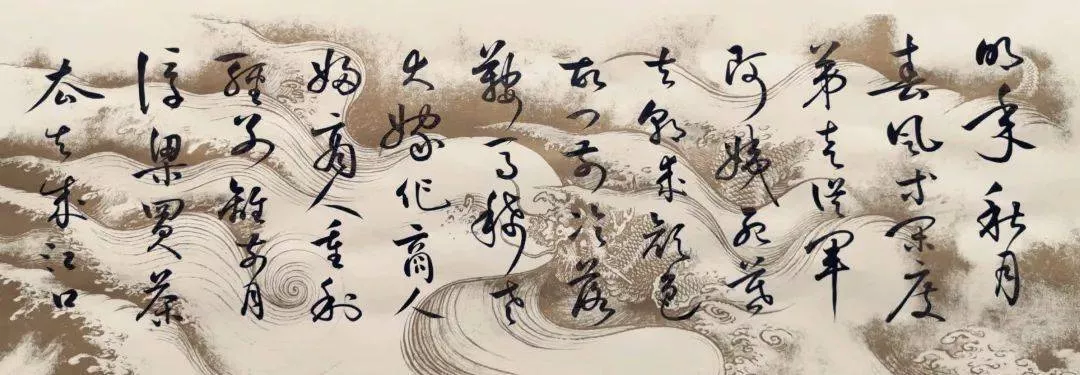 明年秋月
春風等閑度
弟走從軍
阿姨死暮
去朝來顏色
故門前冷落
鞍馬稀老
大嫁作商人
婦商人重利
輕別離前月
浮梁買茶
去去來江口